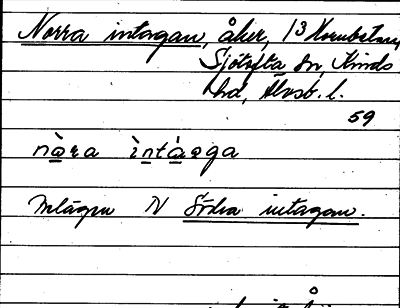 Norra intagan, åker, 13
Sjötofta sn, Kinds
hd, Älvsb. l.
59
nàra ìntàaga
Inlägan N Södra intagan.
Å